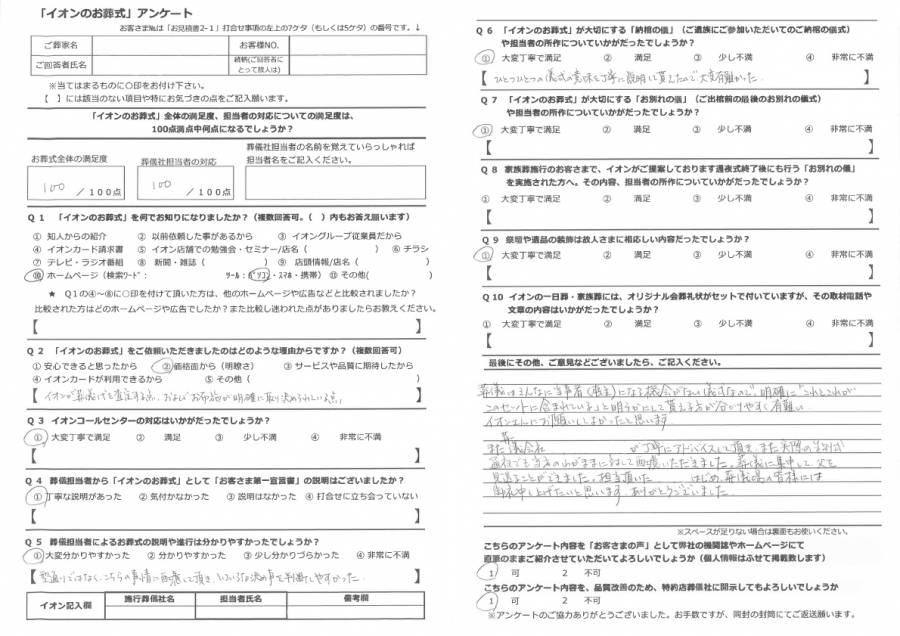 「イオンのお葬式」アンケート
お客さま№は「お見積書2-1」打合せ事項の左上の7ケタ（もしくは5ケタ）の番号です。↓
ご葬家名
お客様NO.
ご回答者氏名
続柄(ご回答者にとって故人は)
※当てはまるものに○印をお付け下さい。
【　】には該当のない項目や特にお気づきの点をご記入願います。
「イオンのお葬式」全体の満足度、担当者の対応についての満足度は、
100点満点中何点になるでしょうか？
お葬式全体の満足度
葬儀社担当者の対応
葬儀社担当者の名前を覚えていらっしゃれば
担当者名をご記入ください。
100 / 100点
100 / 100点
Q 1　「イオンのお葬式」を何でお知りになりましたか？（複数回答可。（　）内もお答え願います）
① 知人からの紹介　② 以前依頼した事があるから　③ イオングループ従業員だから
④ イオンカード請求書　⑤ イオン店舗での勉強会・セミナー/店名（　　）　⑥ チラシ
⑦ テレビ・ラジオ番組　⑧ 新聞・雑誌（　　）　⑨ 店頭情報/店名（　　）
⑩ ホームページ（検索ﾜｰﾄﾞ：　　ﾂｰﾙ：ﾊﾟｿｺﾝ・ｽﾏﾎ・携帯）　⑪ その他(　　)
★　Q１の④～⑧に○印を付けて頂いた方は、他のホームページや広告などと比較されましたか？
比較された方はどのホームページや広告でしたか？また比較し迷われた点がありましたらお教えください。
【　】
Q 2　「イオンのお葬式」をご依頼いただきましたのはどのような理由からですか？（複数回答可）
① 安心できると思ったから　② 価格面から（明瞭さ）　③ サービスや品質に期待したから
④ イオンカードが利用できるから　⑤ その他（　　）
【イオンが葬儀社を査定する点、およびお布施が明確に取り決められている点】
Q 3　イオンコールセンターの対応はいかがだったでしょうか？
① 大変丁寧で満足　②　満足　③　少し不満　④　非常に不満
【　】
Q 4　葬儀担当者から「イオンのお葬式」として「お客さま第一宣言書」の説明はございましたか？
① 丁寧な説明があった　② 気付かなかった　③ 説明はなかった　④ 打合せに立ち会っていない
【　】
Q 5　葬儀担当者によるお葬式の説明や進行は分かりやすかったでしょうか？
① 大変分かりやすかった　② 分かりやすかった　③ 少し分かりづらかった　④ 非常に不満
【型通りではなく、こちらの事情に配慮して頂き、いろいろな決め事を判断しやすかった.】
イオン記入欄
施行葬儀社名
担当者氏名
備考欄
Q 6　「イオンのお葬式」が大切にする「納棺の儀」（ご遺族にご参加いただいてのご納棺の儀式）
や担当者の所作についていかがだったでしょうか？
① 大変丁寧で満足　②　満足　③　少し不満　④　非常に不満
【ひとつひとつの儀式の意味を丁寧に説明して貰えたので大変有難かった.】
Q 7　「イオンのお葬式」が大切にする「お別れの儀」（ご出棺前の最後のお別れの儀式）
や担当者の所作についていかがだったでしょうか？
① 大変丁寧で満足　②　満足　③　少し不満　④　非常に不満
【　】
Q 8　家族葬施行のお客さまで、イオンがご提案しております通夜式終了後にも行う「お別れの儀」
を実施された方へ。その内容、担当者の所作についていかがだったでしょうか？
① 大変丁寧で満足　②　満足　③　少し不満　④　非常に不満
【　】
Q 9　祭壇や遺品の装飾は故人さまに相応しい内容だったでしょうか？
① 大変丁寧で満足　②　満足　③　少し不満　④　非常に不満
【　】
Q 10　イオンの一日葬・家族葬には、オリジナル会葬礼状がセットで付いていますが、その取材電話や
文章の内容はいかがだったでしょうか？
① 大変丁寧で満足　②　満足　③　少し不満　④　非常に不満
【　】
最後にその他、ご意見などございましたら、ご記入ください。
葬儀はそんなに当事者（喪主）になる機会がない儀式なので、明確に「これとこれが
このセットに含まれている」と明らかにして貰える方が分かりやすく有難い.
イオンさんにお願いしてよかったと思います.
また葬儀会社　　　が丁寧にアドバイスして頂き、また実際の
通夜でも当方のわがままに対して配慮いただきました. 葬儀に集中して、父を
見送ることができました. 担当頂いた　　はじめ、葬儀場の皆様には
御礼申し上げたいと思います. ありがとうございました.
※スペースが足りない場合は裏面もお使いください。
こちらのアンケート内容を「お客さまの声」として弊社の機関誌やホームページにて
直筆のままご紹介させていただいてよろしいでしょうか（個人情報はふせて掲載致します）
1　可　　2　不可
こちらのアンケート内容を、品質改善のため、特約店葬儀社に開示してもよろしいでしょうか
1　可　　2　不可
※アンケートのご協力ありがとうございました。お手数ですが、同封の封筒にてご返送願います。